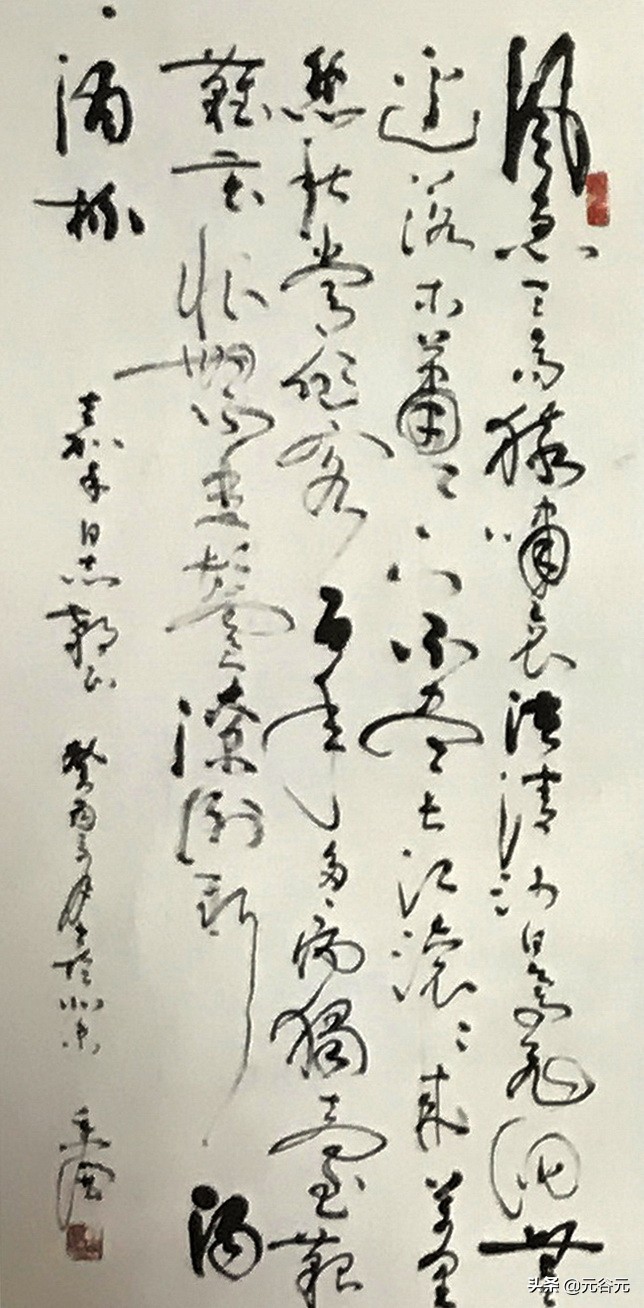 風急天高猿嘯哀渚清沙白鳥飛回無
邊落木蕭〻下不盡長江滾〻來萬里
悲秋常作客百年多病獨登臺艱
難苦恨繁霜鬢潦倒新濁
酒杯
嘉年同志 癸酉於北京
头条 @元谷元